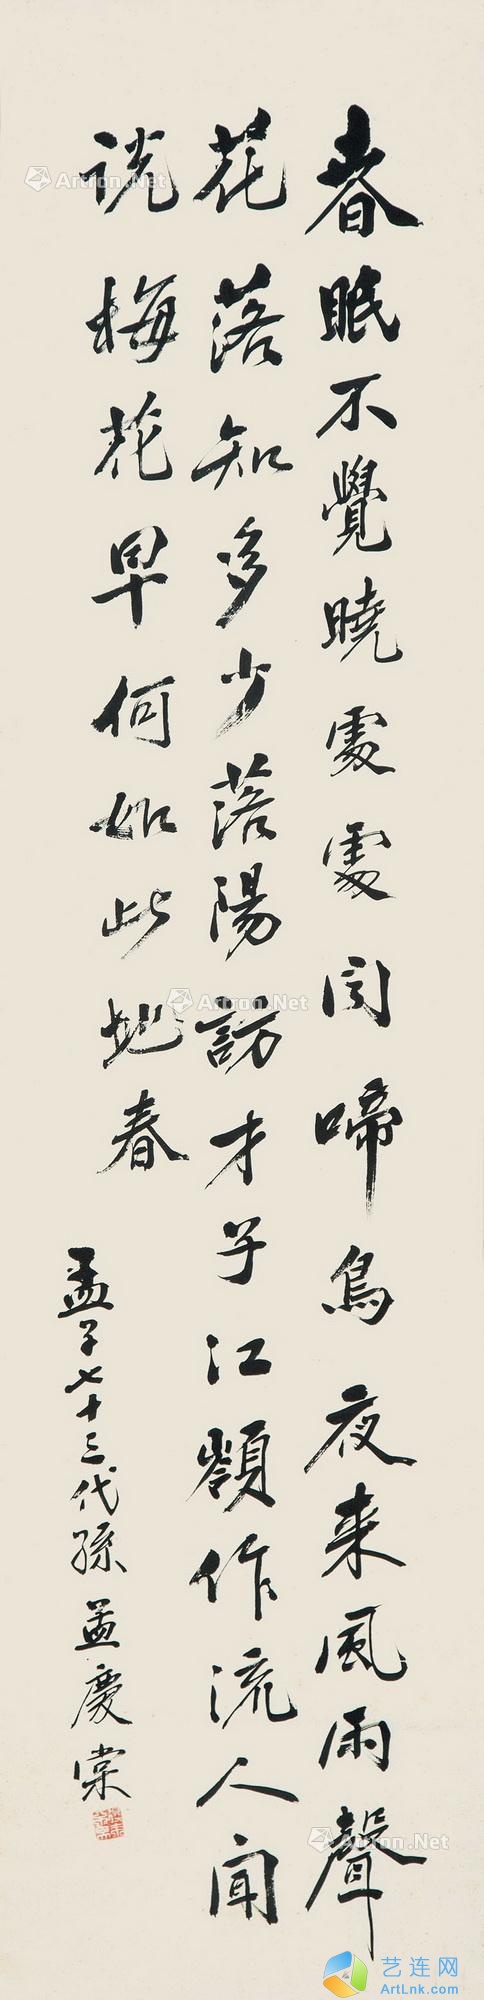 春眠不覺曉處處闻啼鳥夜来風雨聲
花落知多少落陽訪才子江嶺作流人闻
说梅花早何如此地春
孟子七十三代孫孟慶棠
Artron.Net
Artron.Net
Artron.Net
Artron.Net
Artron.Net
艺连网
ArtLnk.com